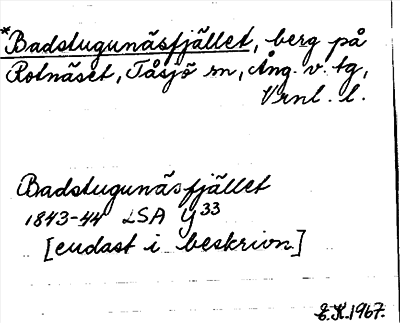 *Badstugunäsfjället, berg på
Rotnäset, Tåsjö sn, Ång. v. tg,
Vrnl. l.
Badstugunäsfjället
1843-44 LSA Y33
[endast i beskrivn]
E.K. 1967.